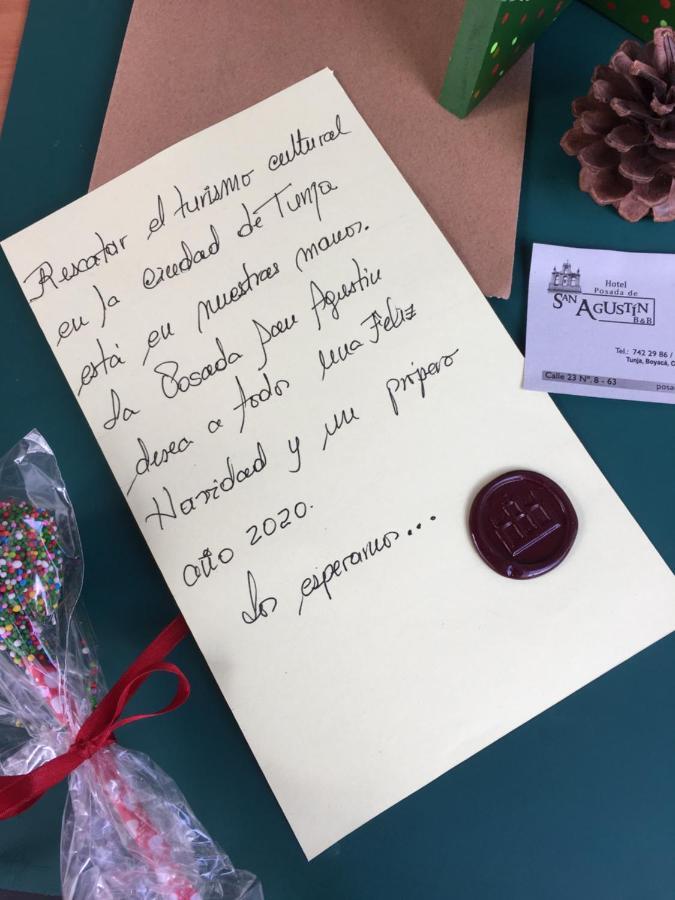 Rescatar el turismo cultural
en la ciudad de Tunja
está en nuestras manos.
La Posada San Agustin
desea a todos una Feliz
Navidad y un própero
año 2020.
Los esperamos...
Hotel
Posada de
SAN AGUSTÍN
B&B
Tel.: 742 29 86 /
Tunja, Boyacá, C
Calle 23 N°. 8 - 63
posa